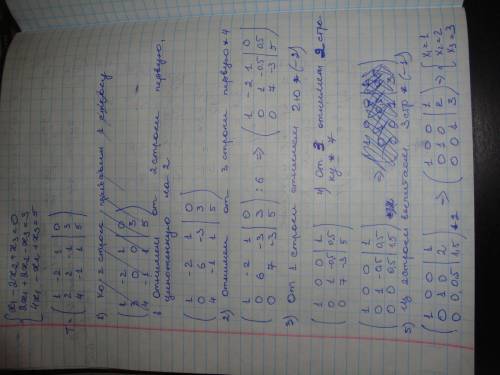 { x₁ - 2x₂ + x₃ = 0
2x₁ + 2x₂ - x₃ = 3
4x₁ - x₂ + x₃ = 5
T = ( 1 -2 1 | 0
2 2 -1 | 3
4 -1 1 | 5 )
1) Ко 2 строке прибавим 1 строку
( 1 -2 1 | 0
3 0 0 | 3
4 -1 1 | 5 )
1 Отнимаем от 2 строки первую,
умноженную на 2
( 1 -2 1 | 0
0 6 -3 | 3
4 -1 1 | 5 )
2) Отнимаем от 3 строки первую * 4
( 1 -2 1 | 0
0 6 -3 | 3
0 7 -3 | 5 ) : 6 => ( 1 -2 1 | 0
0 1 -0,5 | 0,5
0 7 -3 | 5 )
3) От 1 строки отнимаем 2ю * (-2)
( 1 0 0 | 1
0 1 -0,5 | 0,5
0 7 -3 | 5 )
4) От 3 отнимаем 2 стро
ку * 7
( 1 0 0 | 1
0 1 -0,5 | 0,5
0 0 0,5 | 1,5 )
=>
5) Из 2 строки вычитаем 3 стр * (-1)
( 1 0 0 | 1
0 1 0 | 2
0 0 0,5 | 1,5 ) *2 => ( 1 0 0 | 1
0 1 0 | 2
0 0 1 | 3 ) => { x₁ = 1
x₂ = 2
x₃ = 3